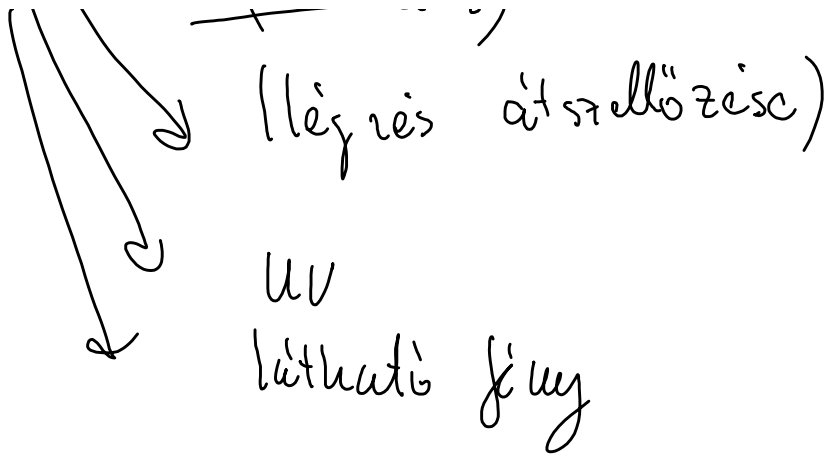 (légzés átszellőzése)
UV
látható fény